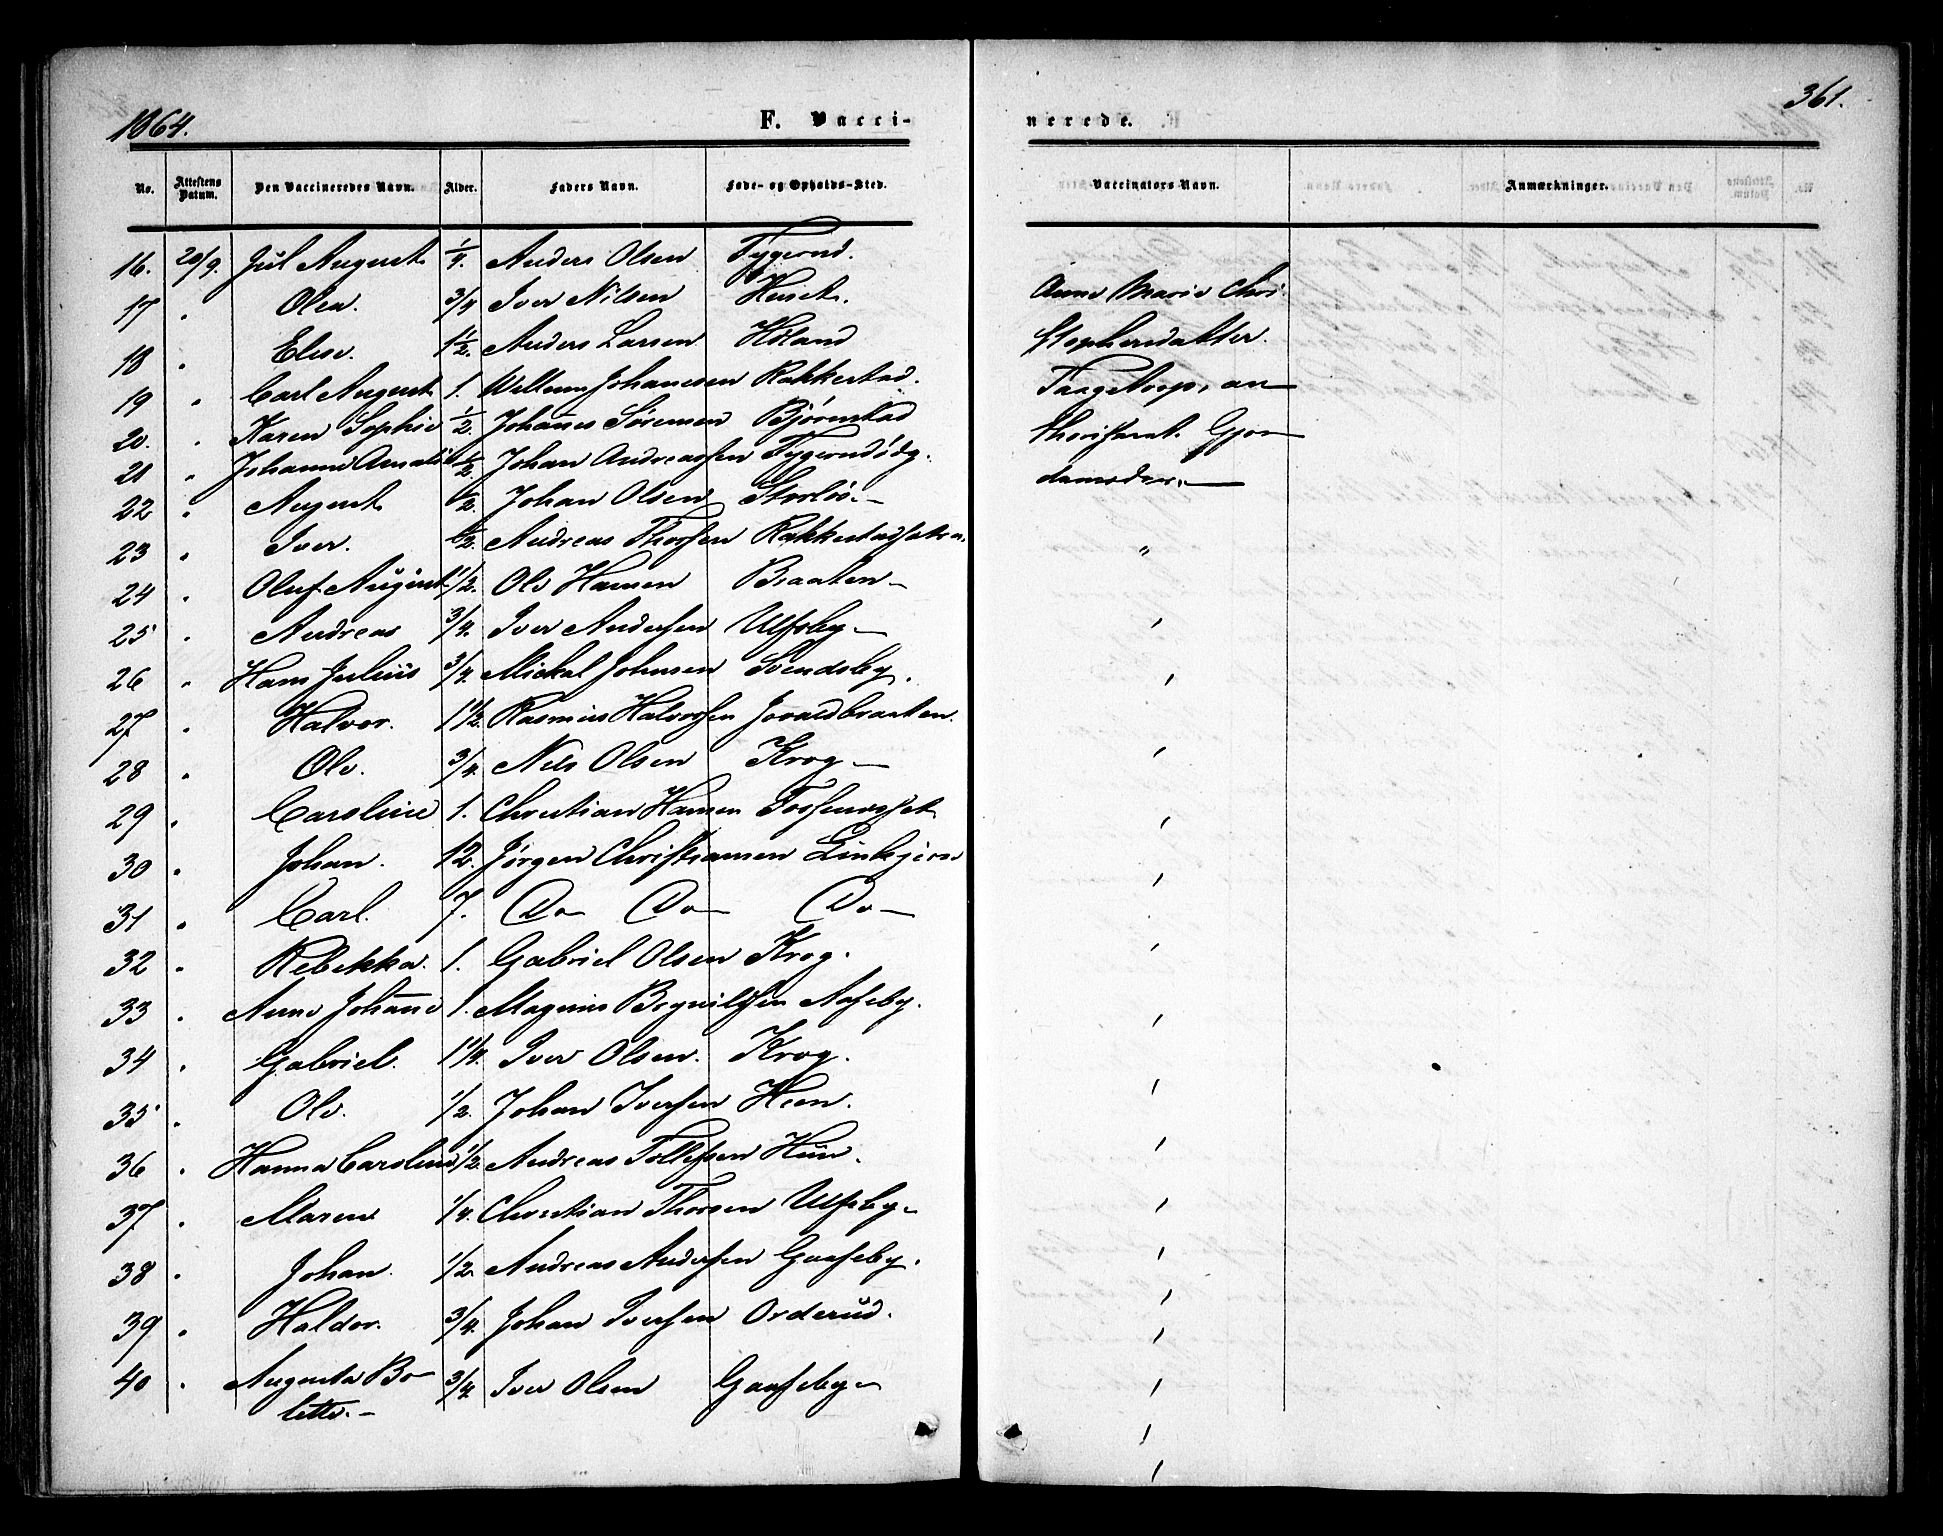 1864.
F. Vacci-
No. Attestens Datum. Den Vaccineredes Navn. Alder. Faders Navn. Føde- og Opholds-Sted.
16. 20/9. Jul August 1/4 Anders Olsen
17 " Olea. 3/4 Iver Nilsen
18 " Elise. 1 1/2. Anders Larsen Höland
19 " Carl August 1. Willum Johanesen Rakkestad.
20. " Karen Sophie 1/2. Johanes Sörensen Björnstad
21 " Johanne Amalie 1/2 Johan Andreassen
22 " August 1/2. Johan Olsen
23 " Iver. 1/2. Andreas Thorsen
24 " Oluf August 1/2. Ole Hansen Braaten
25 " Andreas 3/4. Iver Andersen Ulfsby
26 " Hans Julius 3/4. Mickal Johnsen Svendsby.
27 " Halvor. 1 1/2. Rasmus Halvorsen
28 " Ole. 3/4. Nils Olsen Krog
29 " Caroline 1. Christian Hansen
30 " Johan. 12. Jörgen Christiansen
31 " Carl. 7. Do Do Do
32 " Rebekka. 1. Gabriel Olsen Krog.
33 " Anne Johanne 1. Magnus Aaseby.
34 " Gabriel. 1 1/4. Iver Olsen. Krog.
35 " Ole. 1/2. Johan Iversen Heen.
36 " Hanna Caroline 1/2. Andreas Tollefsen
37 " Maren 1/4. Christian Thorsen Ulfsby
38 " Johan. 1/2. Andreas Andersen Gaaseby.
39 " Haldor. 3/4. Johan Iversen Orderud.
40 " Augusta Bo- 3/4. Iver Olsen Gaaseby
lette.
361.
nerede.
Vaccinators Navn. Anmærkninger.
Anne Marie Chri-
stophersdatter
Taagetorp, au-
thoriseret Gjor-
demoder.